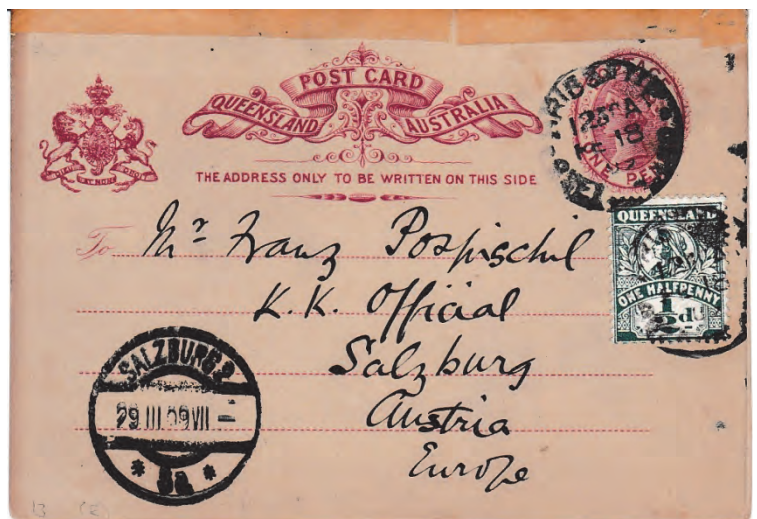 POST CARD
QUEENSLAND AUSTRALIA
THE ADDRESS ONLY TO BE WRITTEN ON THIS SIDE
ONE PEN
To Mr Franz Pospischil
K.K. Official
Salzburg
Austria
Europe
QUEENSLAND
ONE HALFPENNY
1/2 d
SALZBURG 2
29 III 09 VII
* 3a *
13 (E)